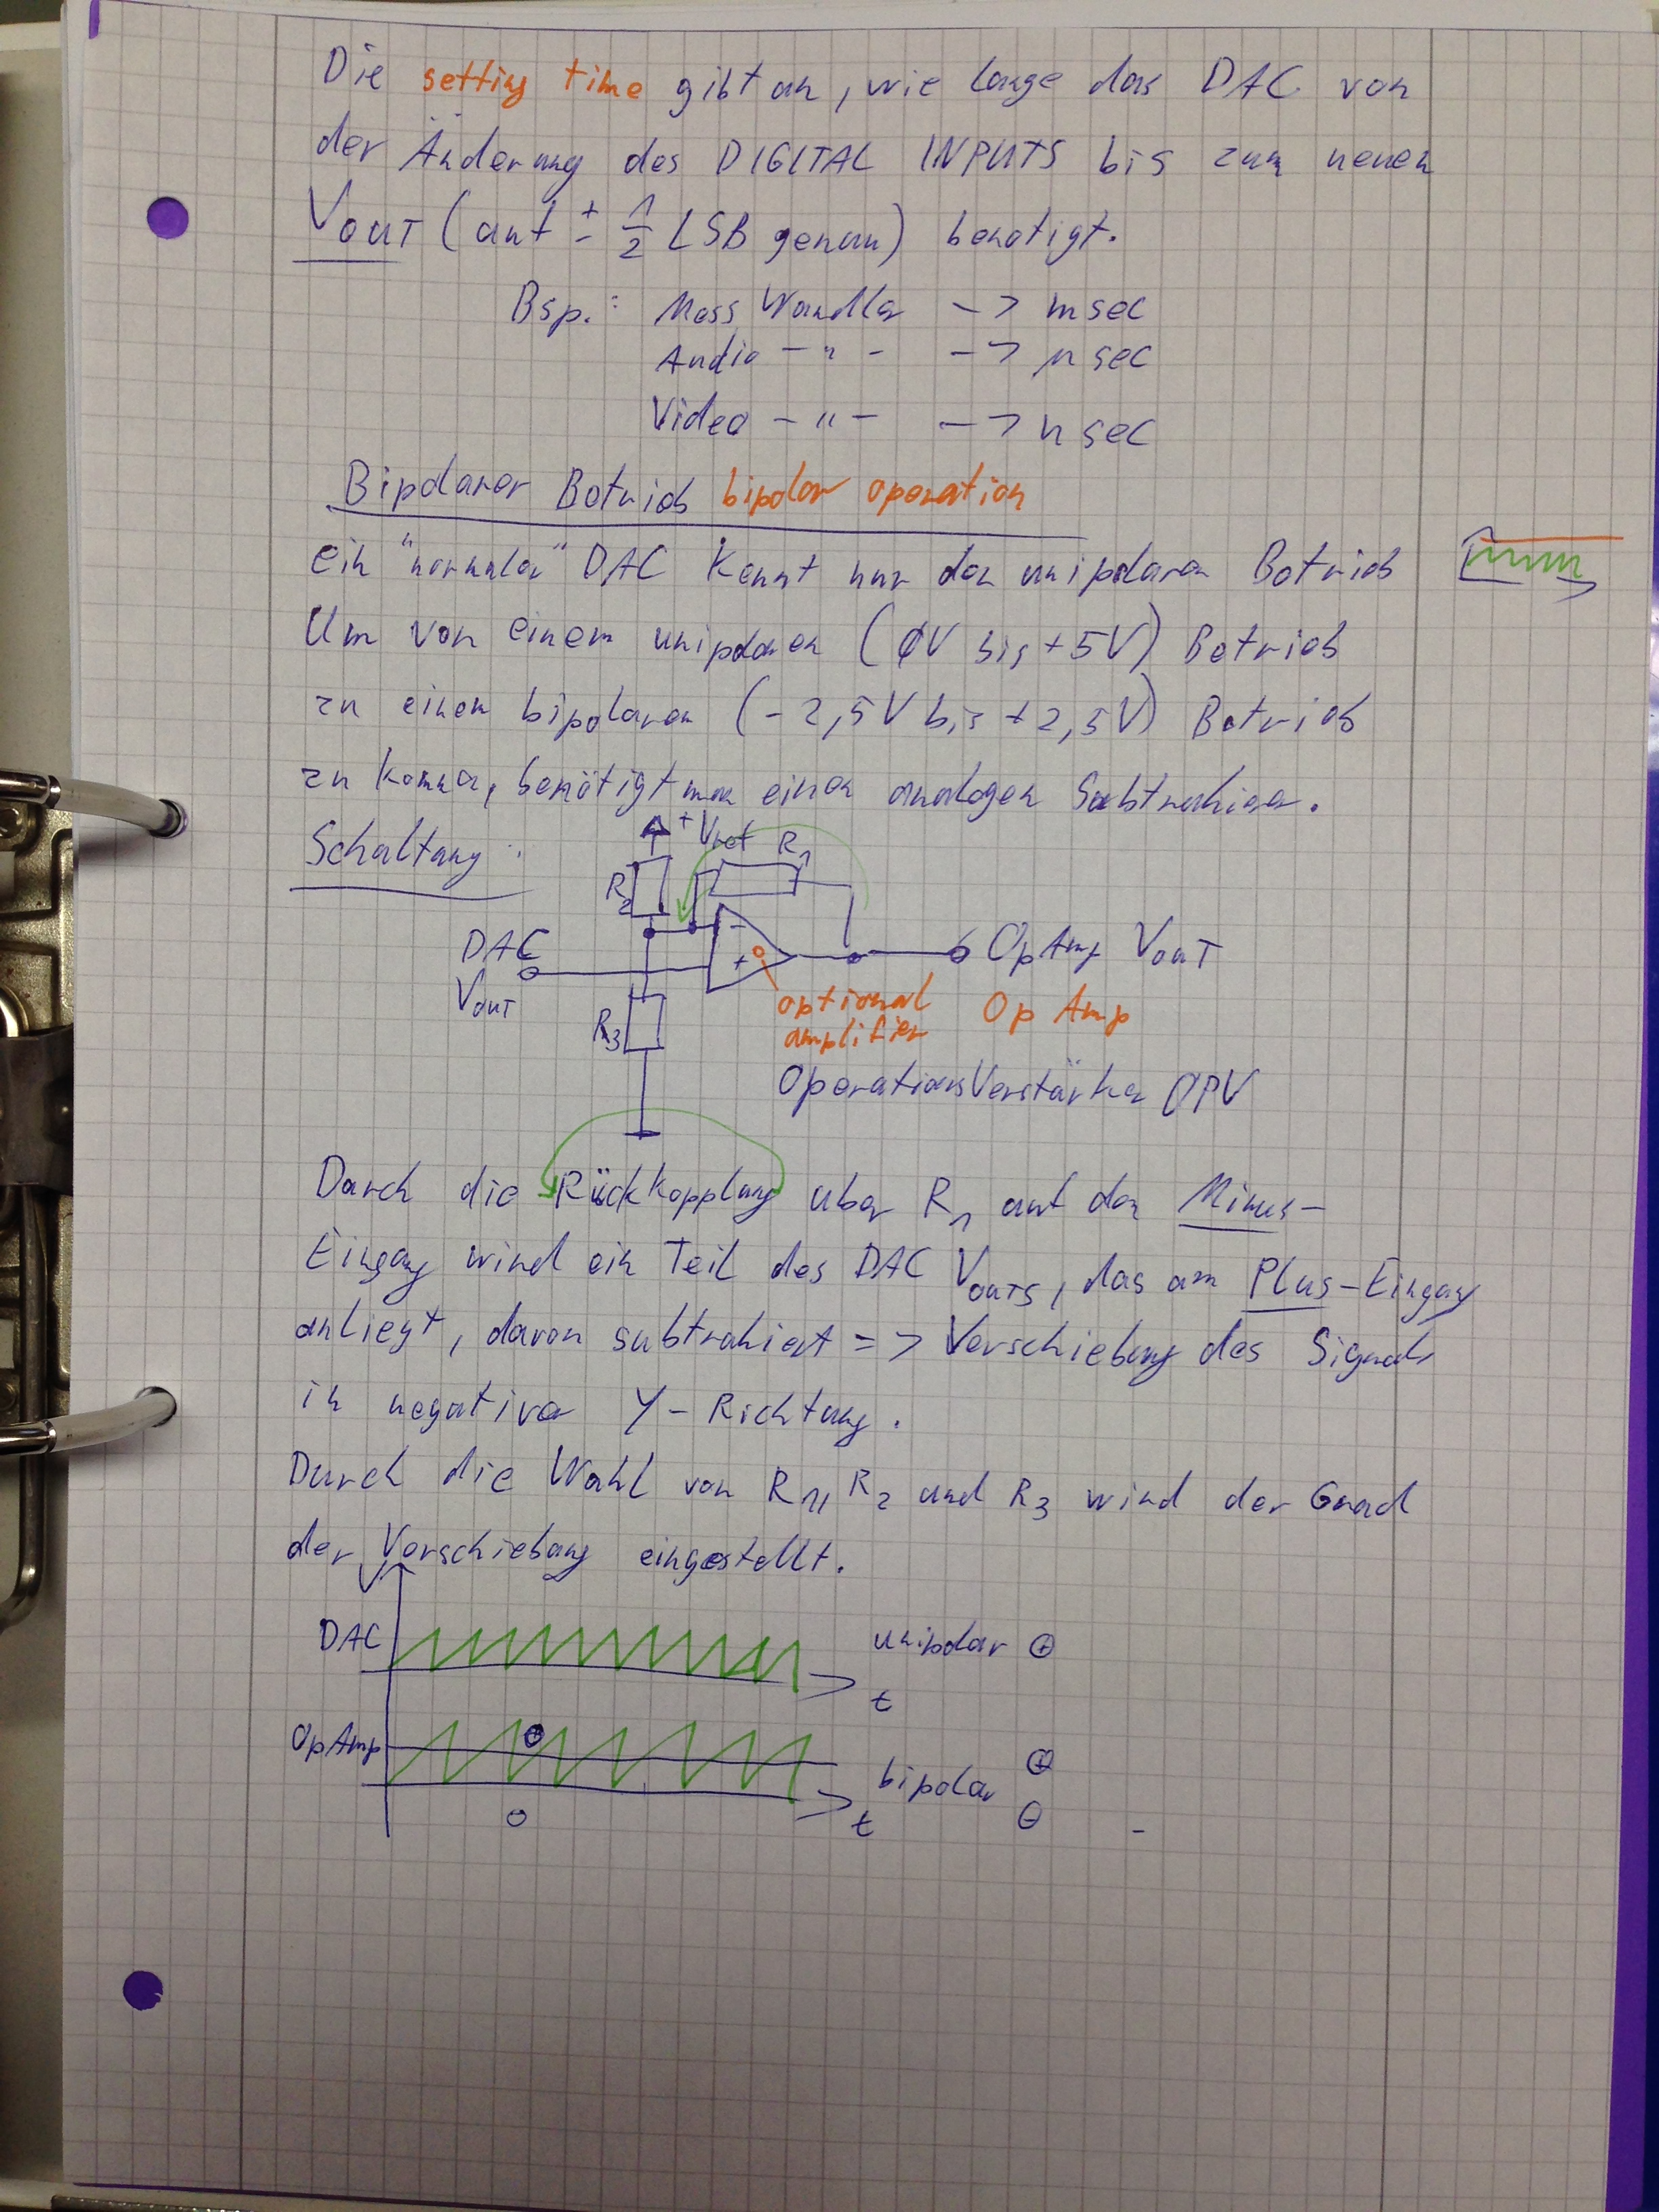 Die setting time gibt an, wie lange das DAC von
der Änderung des DIGITAL INPUTS bis zum neuen
VOUT (auf ± 1/2 LSB genau) benötigt.
Bsp.: Mess Wandler -> msec
Audio - " - -> µsec
Video - " - -> nsec
Bipolarer Betrieb bipolar operation
ein "normaler" DAC kennt nur den unipolaren Betrieb
Um von einem unipolaren (0V bis +5V) Betrieb
zu einem bipolaren (-2,5V bis +2,5V) Betrieb
zu kommen, benötigt man einen analogen Subtrahierer.
Schaltung:
+Vref R1
R2
-
DAC VOUT
+
OpAmp VOUT
R3
optional amplifier Op Amp
OperationsVerstärker OPV
Durch die Rückkopplung über R1 auf den Minus-
Eingang wird ein Teil des DAC VOUTS, das am Plus-Eingang
anliegt, davon subtrahiert => Verschiebung des Signals
in negativer Y-Richtung.
Durch die Wahl von R1, R2 und R3 wird der Grad
der Verschiebung eingestellt.
DAC unipolar +
t
OpAmp + bipolar + -
t